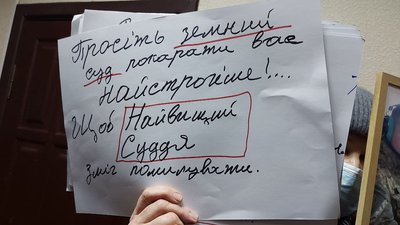 Просіть земний
суд покарати вас
найстрогіше!...
Щоб Найвищий
Суддя
Зміг помилувати.